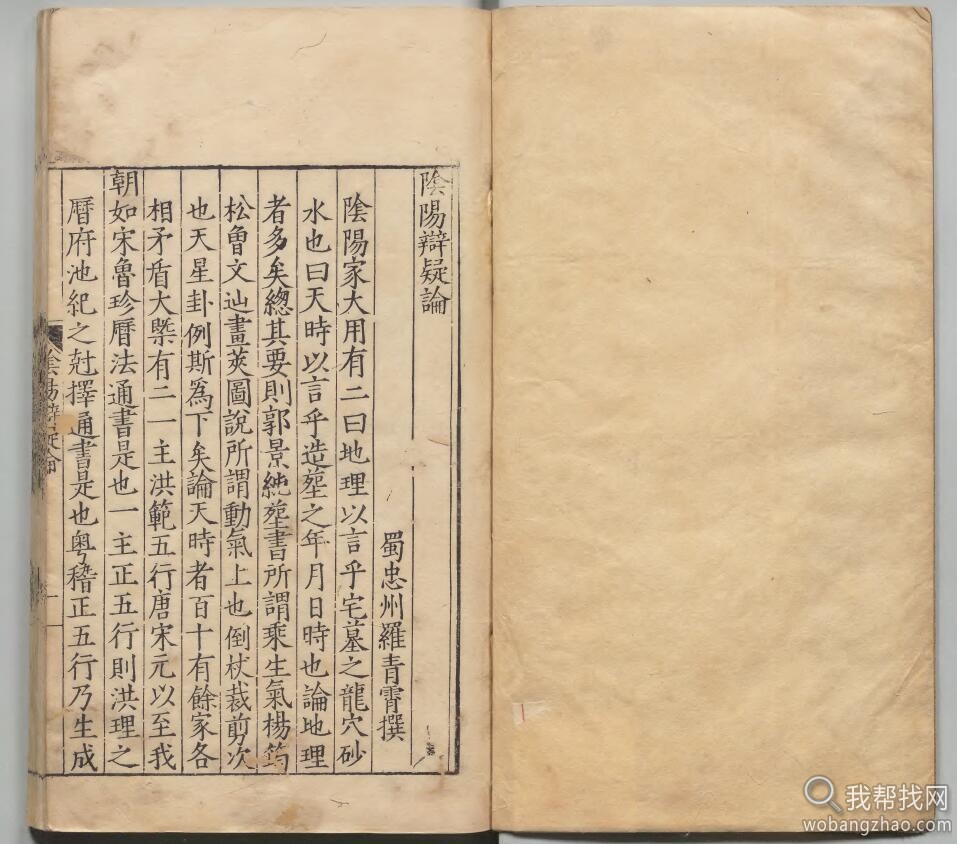 陰陽辯疑論
蜀忠州羅青霄撰
陰陽家大用有二曰地理以言乎宅墓之龍穴砂
水也曰天時以言乎造塟之年月日時也論地理
者多矣總其要則郭景純塟書所謂乘生氣楊筠
松魯文辿畫莢圖說所謂動氣上也倒杖裁剪次
也天星卦例斯爲下矣論天時者百十有餘家各
相矛盾大槩有二一主洪範五行唐宋元以至我
朝如宋魯珍曆法通書是也一主正五行則洪理之
曆府池紀之尅擇通書是也粤稽正五行乃生成
陰陽辯疑論
一
我帮找网
wobangzhao.com